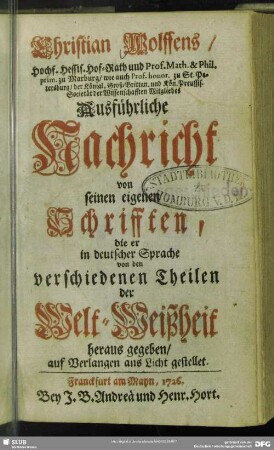 Christian Wolffens/
Hochf. Hessis. Hof-Rath und Prof. Math. & Phil.
prim. zu Marburg/ wie auch Prof. honor. zu St. Pe-
tersburg/ der Königl. Groß-Brittan. und Kön. Preussis-
Societät der Wissenschafften Mitgliedes
Ausführliche
Nachricht
von
seinen eigenen
Schrifften,
die er
in deutscher Sprache
von den
verschiedenen Theilen
der
Welt-Weißheit
heraus gegeben/
auf Verlangen ans Licht gestellet.
Franckfurt am Mayn, 1726.
Bey J. B. Andreä und Henr. Hort.
STADTBIBLIOTHEK
HOMBURG V.D.H.
SLUB
DFG